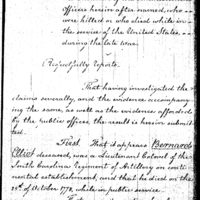 officers herein after named, who
were killed or who died while in
the service of the United States,
during the late war.
Respectfully Reports.
That having investigated the
claims severally, and the evidence accompany
ing the same, as well as the evidence afforded
by the public offices, the result is herein submit
ted.
First. That it appears Bernard
deceased, was a Lieutenant Colonel of the
South Carolina Regiment of Artillery on conti
nental establishment, and that he died on the
of October 1778, while in public service.